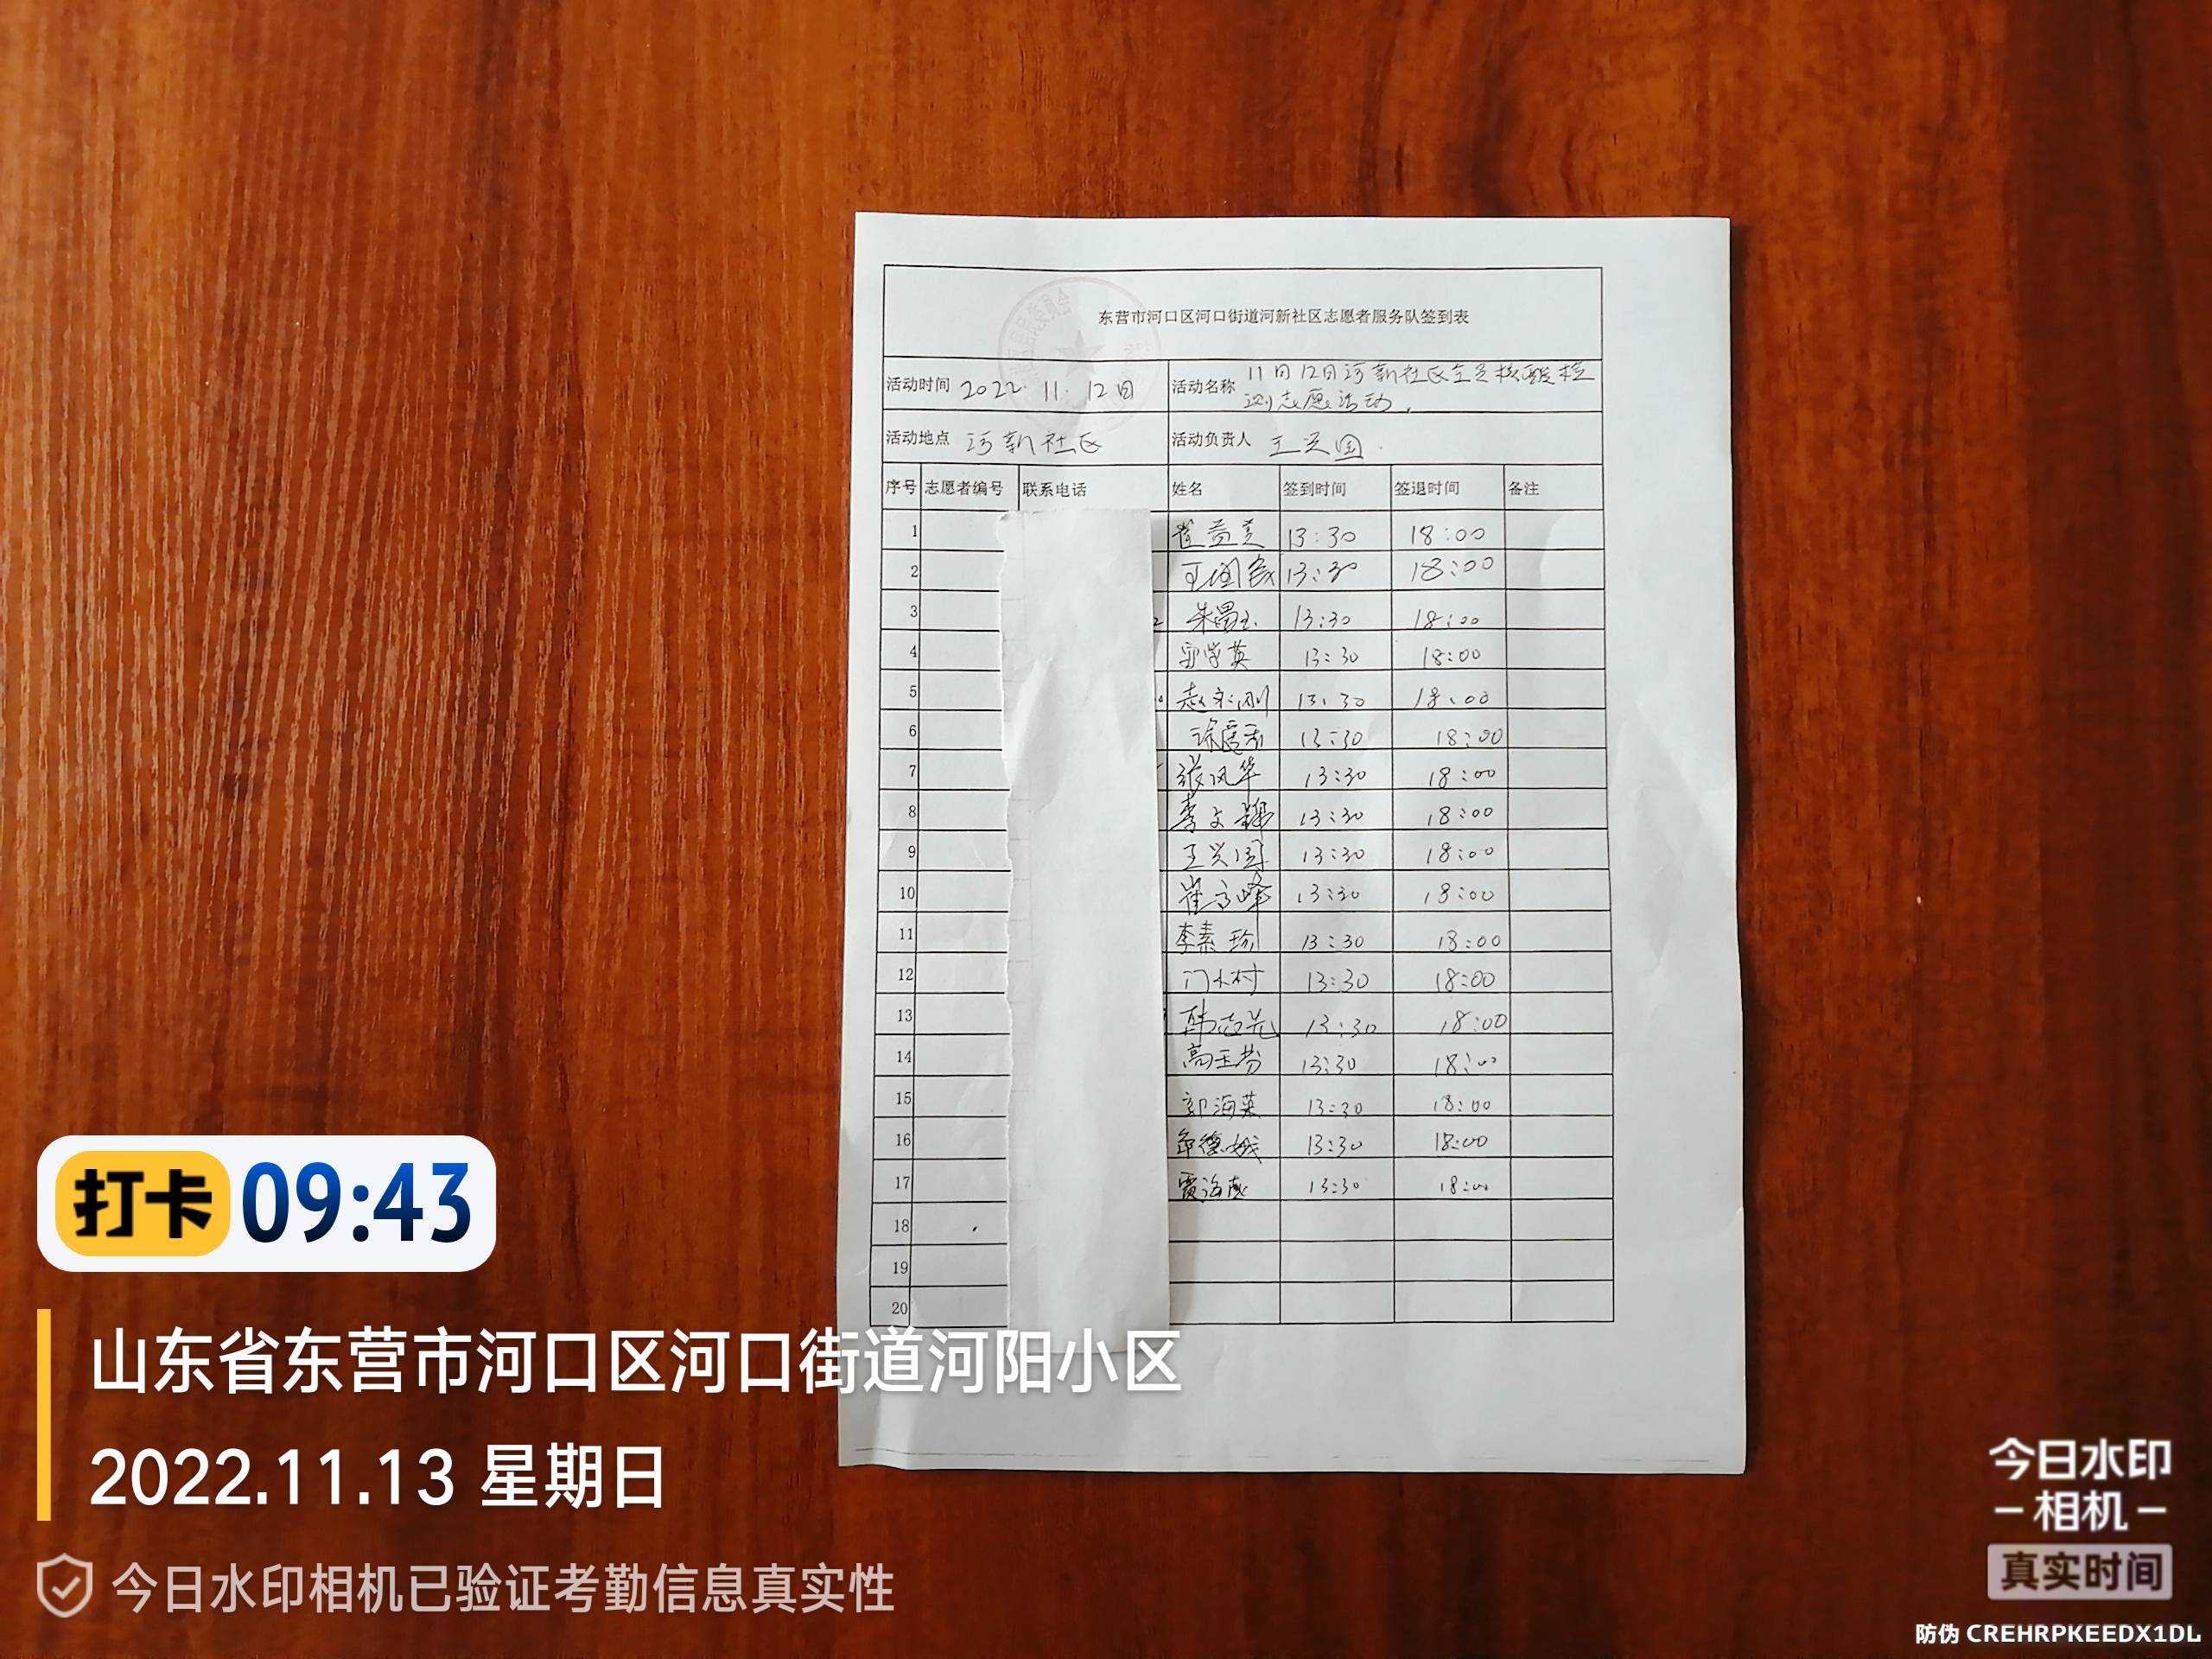 东营市河口区河口街道河新社区志愿者服务队签到表
活动时间 2022.11.12日 活动名称 11月12日河新社区全员核酸检
测志愿活动.
活动地点 河新社区 活动负责人 王兴国
序号 志愿者编号 联系电话 姓名 签到时间 签退时间 备注
1 崔益美 13:30 18:00
2 13:30 18:00
3 朱昌玉 13:30 18:00
4 13:30 18:00
5 13:30 18:00
6 13:30 18:00
7 张风华 13:30 18:00
8 李文 13:30 18:00
9 王兴国 13:30 18:00
10 崔 峰 13:30 18:00
11 李素珍 13:30 18:00
12 门木村 13:30 18:00
13 韩志 13:30 18:00
14 高玉芬 13:30 18:00
15 郭海英 13:30 18:00
16 德娥 13:30 18:00
17 贾海 13:30 18:00
18
19
20
打卡 09:43
山东省东营市河口区河口街道河阳小区
2022.11.13 星期日
今日水印相机已验证考勤信息真实性
今日水印
相机
真实时间
防伪 CREHRPKEEDX1DL